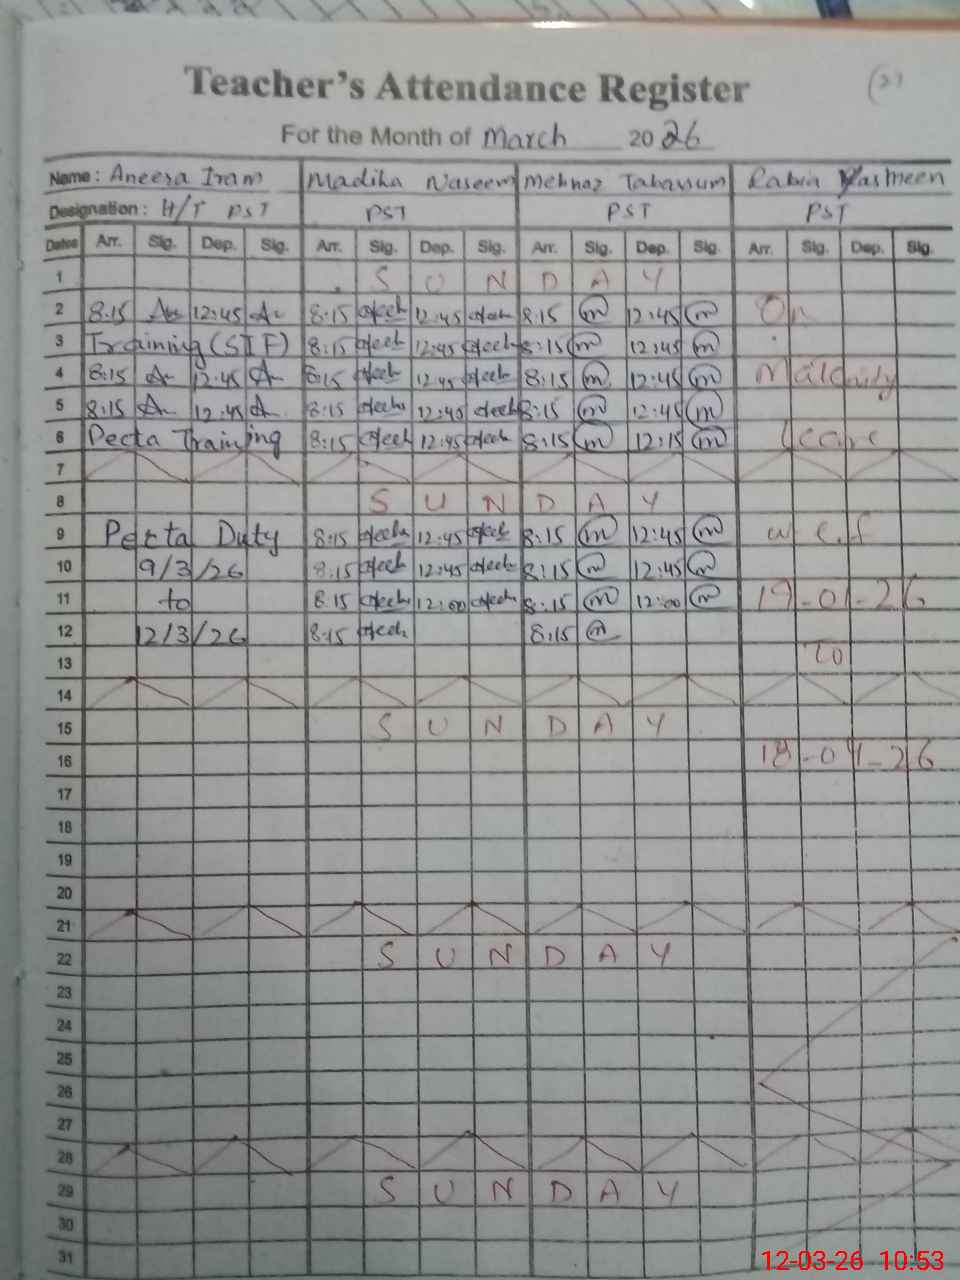 Teacher's Attendance Register
(2)
For the Month of March 2026
Name : Aneeza Iram Madiha Naseem Mehnaz Tabassum Rabia Yasmeen
Designation : H/T PST PST PST PST
Dates Arr. Sig. Dep. Sig. Arr. Sig. Dep. Sig. Arr. Sig. Dep. Sig. Arr. Sig. Dep. Sig.
1 S U N D A Y
2 8:15 12:45 8:15 12:45 8:15 m 12:45 m On
3 Training (STF) 8:15 12:45 8:15 m 12:45 m
4 8:15 12:45 8:15 12:45 8:15 m 12:45 m
5 8:15 12:45 8:15 12:45 8:15 m 12:45 m
6 Pecta Training 8:15 12:45 8:15 m 12:15 m
7
8 S U N D A Y
9 Pecta Duty 8:15 12:45 8:15 m 12:45 m w.e.f
10 9/3/26 8:15 12:45 8:15 m 12:45 m
11 to 8:15 12:00 8:15 m 12:00 m 19-01-26
12 12/3/26 8:15 8:15 m
13 to
14
15 S U N D A Y
16 18-04-26
17
18
19
20
21
22 S U N D A Y
23
24
25
26
27
28
29 S U N D A Y
30
31
12-03-26 10:53